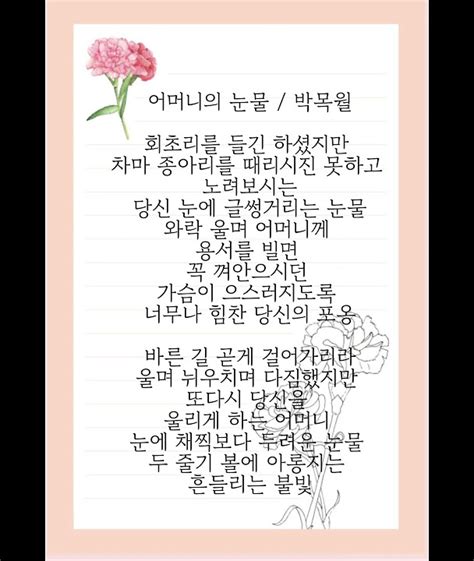 어머니의 눈물 / 박목월
회초리를 들긴 하셨지만
차마 종아리를 때리시진 못하고
노려보시는
당신 눈에 글썽거리는 눈물
와락 울며 어머니께
용서를 빌면
꼭 껴안으시던
가슴이 으스러지도록
너무나 힘찬 당신의 포옹
바른 길 곧게 걸어가리라
울며 뉘우치며 다짐했지만
또다시 당신을
울리게 하는 어머니
눈에 채찍보다 두려운 눈물
두 줄기 볼에 아롱지는
흔들리는 불빛